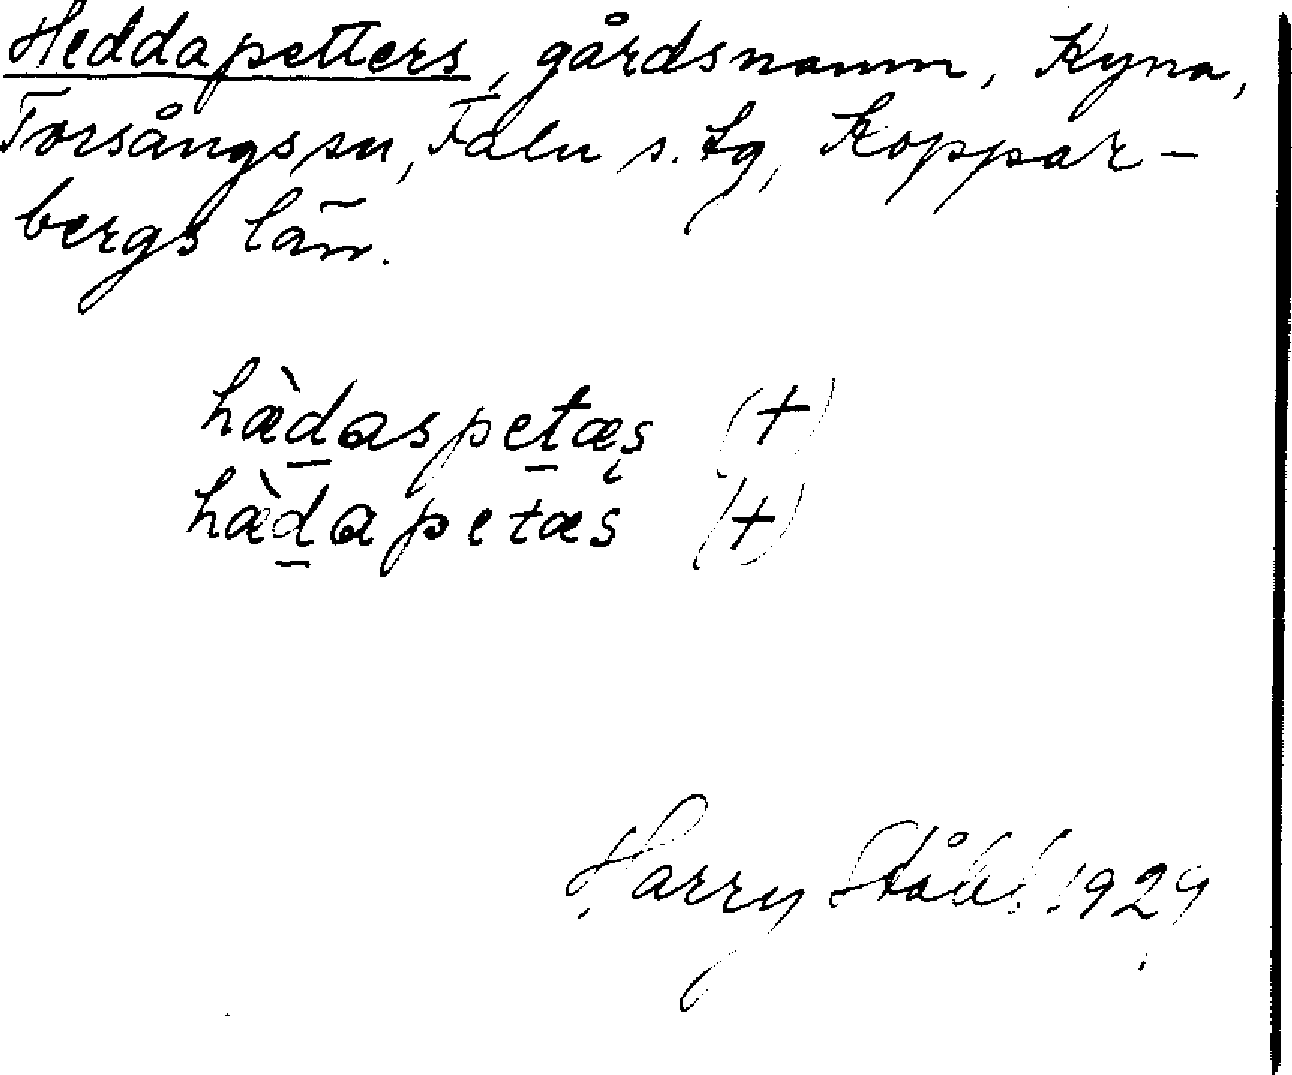 Heddapetters, gårdsnamn, Kyna,
Torsångs sn, Falu s. tg, Koppar-
bergs län.
hæ̀d̲aspet̲æş (+)
hæ̀d̲apetæs (+)
Harry Ståhl 1929